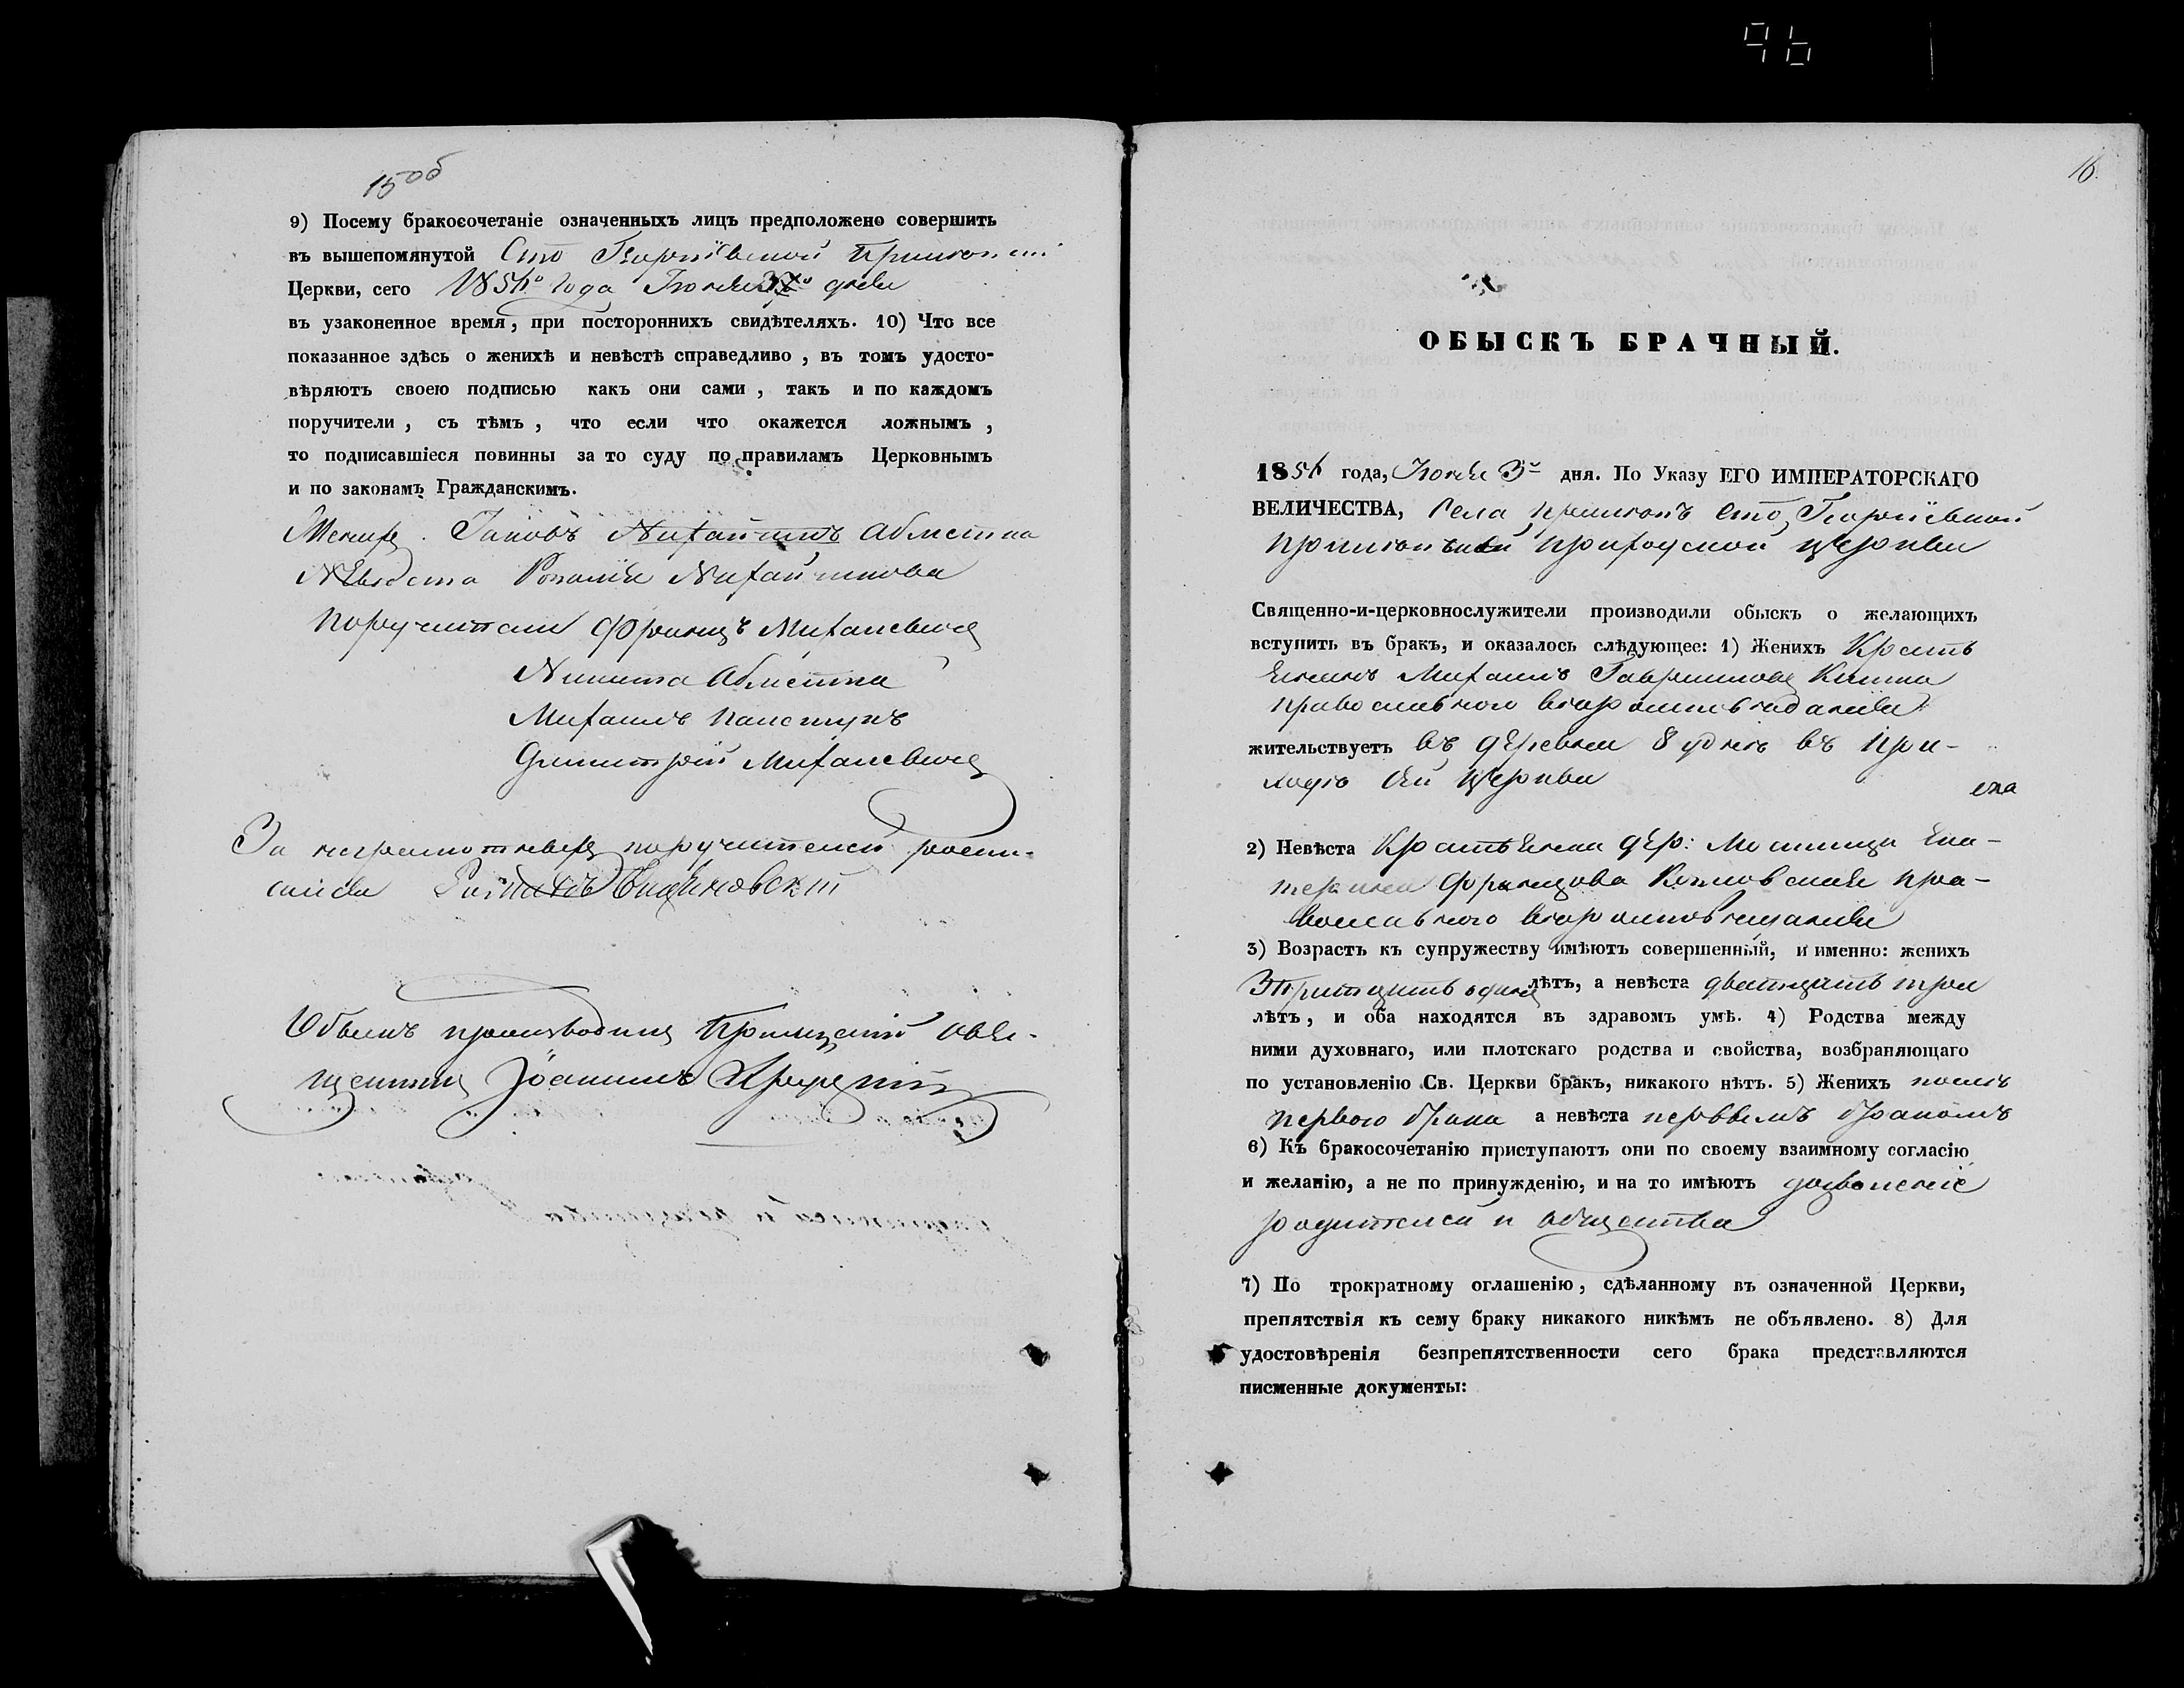 96
15об
9) Посему бракосочетаніе означенныхъ лицъ предположено совершить
въ вышепомянутой Сто Георгіевской
Церкви, сего года дня
въ узаконенное время, при постороннихъ свидѣтеляхъ. 10) Что все
показанное здѣсь о женихѣ и невѣстѣ справедливо, въ томъ удосто-
вѣряютъ своею подписью какъ они сами, такъ и по каждомъ
поручители, съ тѣмъ, что если что окажется ложнымъ,
то подписавшіеся повинны за то суду по правиламъ Церковнымъ
и по законамъ Гражданскимъ.
Женихъ Іаковъ
Невѣста Розалія
Поручители Францъ Михалевичъ
Никита
Михаилъ Пастухъ
Димитрій Михалевичъ
За неграмотныхъ поручителей роспи-
сался
Обыскъ производилъ свя-
щенникъ Іоаннъ
16.
ОБЫСКЪ БРАЧНЫЙ.
185 года, 3 дня. По Указу ЕГО ИМПЕРАТОРСКАГО
ВЕЛИЧЕСТВА, Села Сто Георгіевской
приходской церкви
Священно-и-церковнослужители производили обыскъ о желающихъ
вступить въ бракъ, и оказалось слѣдующее: 1) Женихъ Кресть
янинъ Михаилъ Гавриловъ
православнаго вѣроисповѣданія
жительствуетъ въ деревни въ при-
ходѣ сей церкви
2) Невѣста Крестьянка дер: Ека-
терина Францова прав-
вославнаго
3) Возрастъ къ супружеству имѣютъ совершенный, и именно: женихъ
Тритцать одинъ лѣтъ, а невѣста дватцать три
лѣтъ, и оба находятся въ здравомъ умѣ. 4) Родства между
ними духовнаго, или плотскаго родства и свойства, возбраняющаго
по установленію Св. Церкви бракъ, никакого нѣтъ. 5) Женихъ послѣ
первого брака а невѣста первымъ бракомъ
6) Къ бракосочетанію приступаютъ они по своему взаимному согласію
и желанію, а не по принужденію, и на то имѣютъ дозволеніе
родителей и общества
7) По трократному оглашенію, сдѣланному въ означенной Церкви,
препятствія къ сему браку никакого никѣмъ не объявлено. 8) Для
удостовѣренія безпрепятственности сего брака представляются
писменные документы: